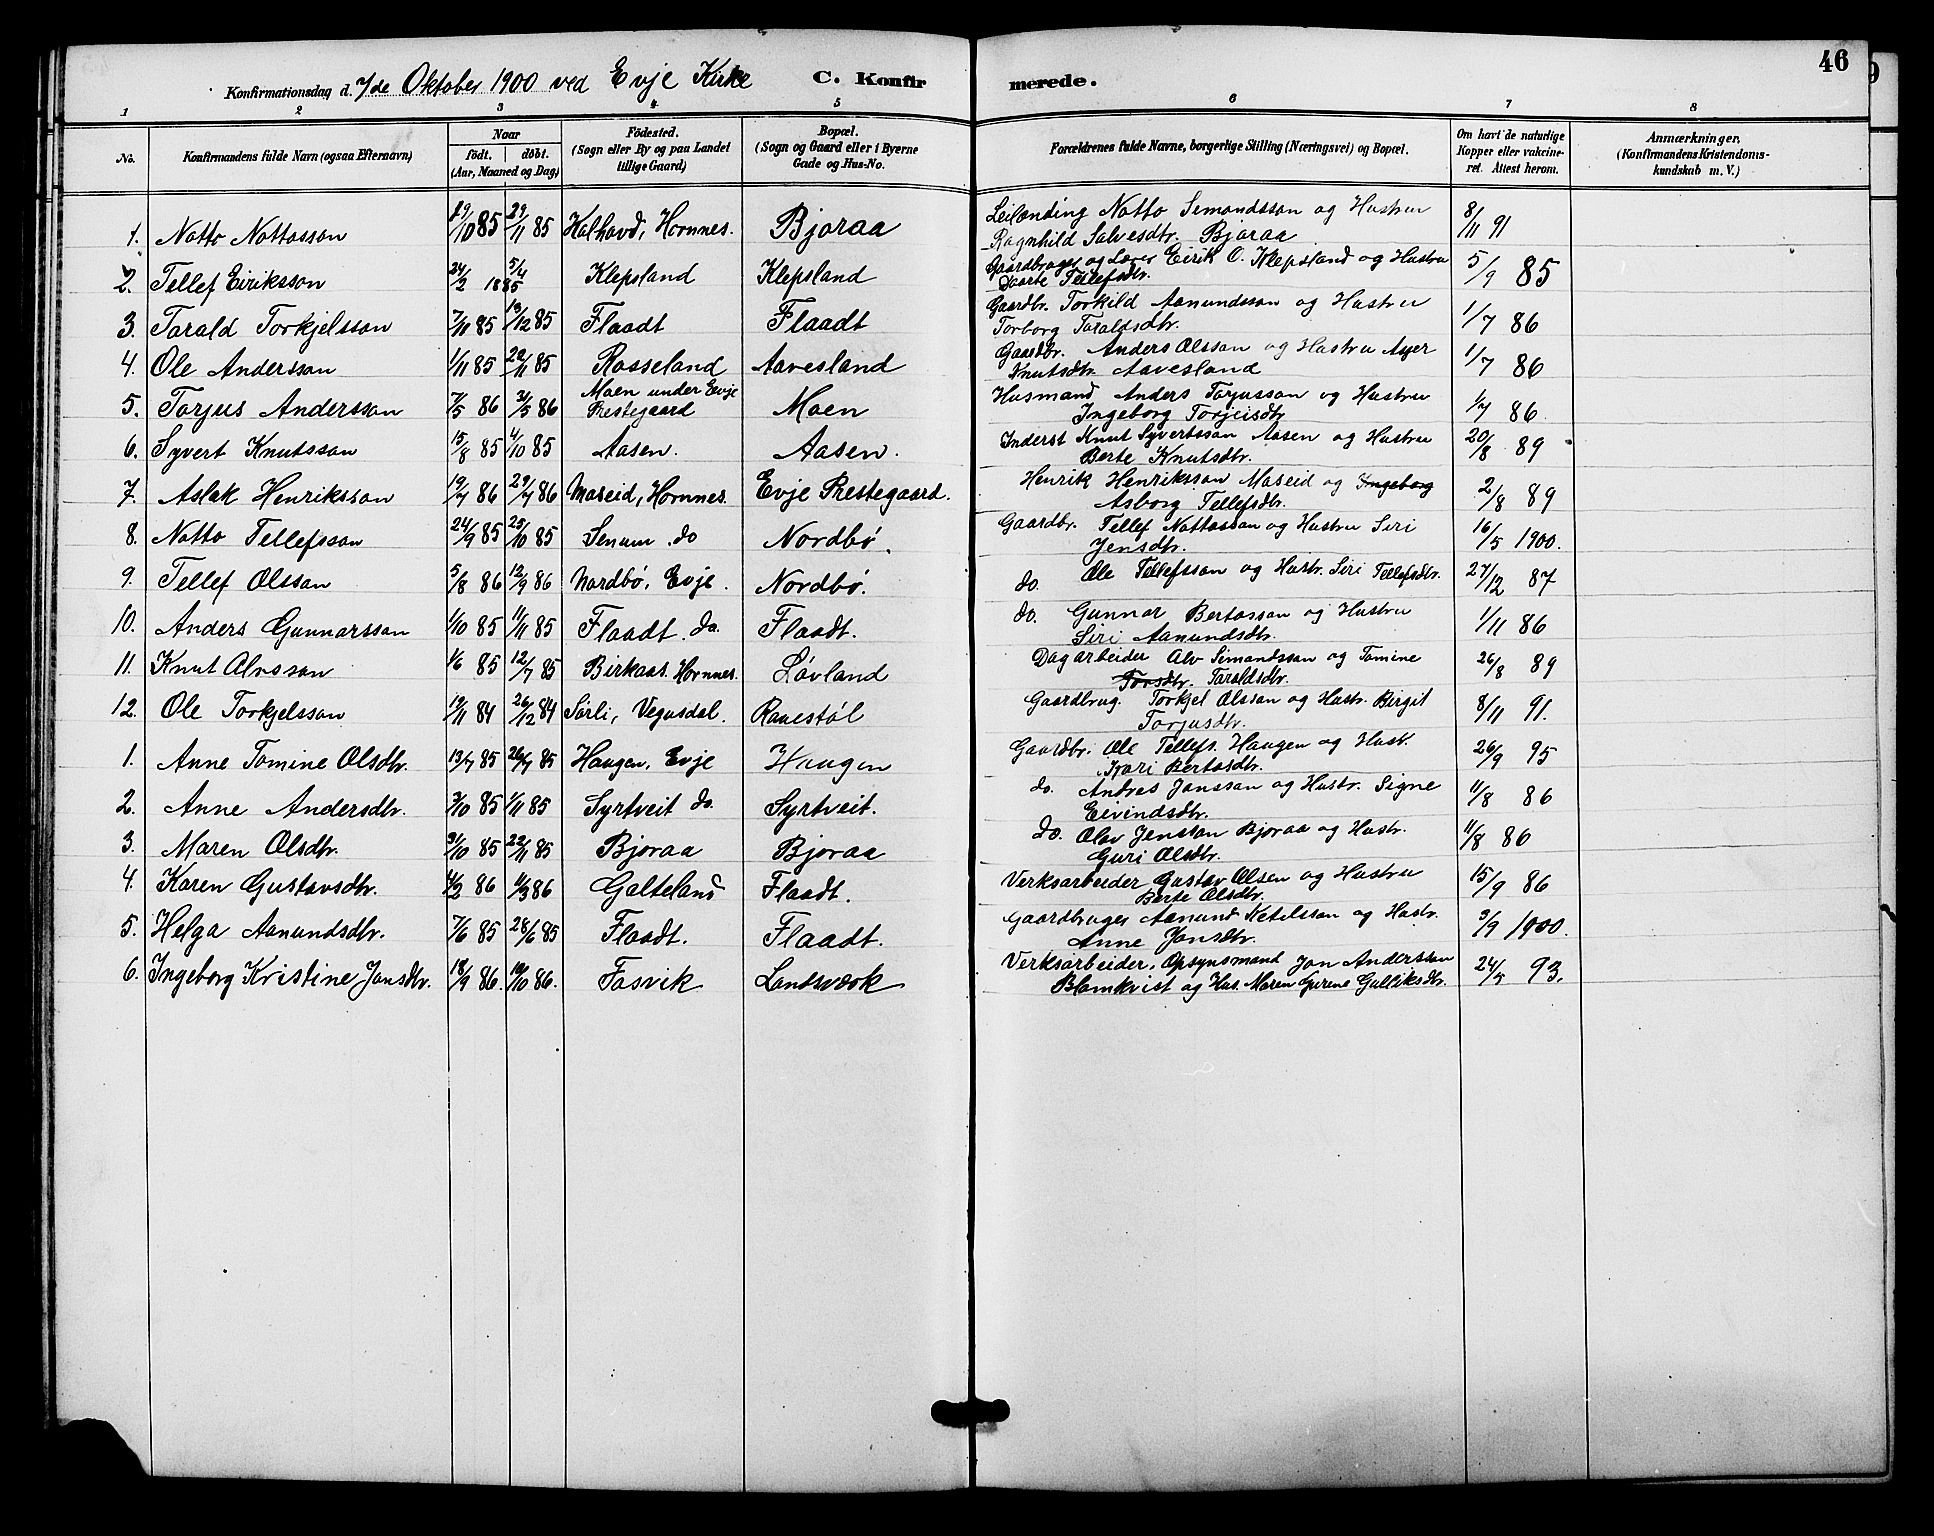 46
Konfirmationsdag d. 7de Oktober 1900 ved Evje Kirke C. Konfirmerede.
1 2 3 4 5 6 7 8
No. Konfirmandens fulde Navn (ogsaa Efternavn) Naar født. døbt. (Aar, Maaned og Dag) Fødested. (Sogn eller By og paa Landet tillige Gaard) Bopæl. (Sogn og Gaard eller i Byerne Gade og Hus-No. Forældrenes fulde Navne, borgerlige Stilling (Næringsvei) og Bopæl. Om havt de naturlige Kopper eller vakcineret. Attest herom. Anmærkninger, (Konfirmandens Kristendomskundskab m. V.)
1. Notto Nottosson 29/10 85 29/11 85 Hornnes. Bjoraa Leilending Notto Simondsson og Hustru 8/11 91
Ragnhild Salvesdtr. Bjoraa
2. Tellef Eiriksson 24/2 1885 5/4 Klepsland Klepsland Gaardbruger og Lærer Eirik O. Klepsland og Hustru 5/9 85
Daarte Tellefsdtr.
3. Tarald Torkjelsson 7/11 85 13/12 85 Flaadt Flaadt Gaardbr. Torkild Aanundsson og Hustru 1/7 86
Torborg Taraldsdtr.
4. Ole Andersson 1/11 85 22/11 85 Rosseland Aavesland Gaardbr. Anders Olsson og Hustru Asjer 1/7 86
Knutsdtr. Aavesland
5. Torjus Andersson 7/5 86 31/5 86 Moen under Evje Prestegaard Moen Husmand Anders Torjusson og Hustru 1/7 86.
Ingeborg Torjeisdtr
6. Syvert Knutsson 15/8 85 4/10 85 Aasen. Aasen. Inderst Knut Syvertsson Aasen og Hustru 20/8 89
Berte Knutsdtr.
7. Aslak Henriksson 19/7 86 29/7 86 Moseid, Hornnes. Evje Prestegaard. Henrik Henriksson Moseid og Ingeborg 2/8 89
Asborg Tellefsdtr.
8. Notto Tellefsson 24/9 85 25/10 85 Senum do Nordbø. Gaardbr. Tellef Nottosson og Hustru Siri 16/5 1900.
Jensdtr.
9. Tellef Olsson 5/8 86 12/9 86 Nordbø, Evje. Nordbø. do. Ole Tellefsson og Hustr. Siri Tellefsdtr. 27/12 87
10. Anders Gunnarsson 1/10 85 1/11 85 Flaadt. do. Flaadt. do. Gunnar Bertosson og Hustru 1/11 86
Siri Aanundsdtr.
11. Knut Alvsson 1/6 85 12/7 85 Birkaas. Hornnes. Løvland Dagarbeider Alv Simondsson og Tomine 26/8 89
Torsdtr. Taraldsdtr.
12. Ole Torkjelsson 19/11 84 26/12 84 Sorli, Vegusdal. Ranestøl Gaardbrug. Torkjel Olsson og Hustr. Birgit 8/11 91.
Torjusdtr.
1. Anne Tomine Olsdtr. 13/7 85 26/7 85 Haugen, Evje Haugen Gaardbr. Ole Tellefs. Haugen og Hust. 26/9 95
Kari Bertosdtr.
2. Anne Andersdtr. 3/10 85 1/11 85 Syrtveit do. Syrtveit. do. Andres Jonsson og Hustr. Signe 11/8 86
Eivindsdtr.
3. Maren Olsdtr. 31/10 85 22/11 85 Bjoraa Bjoraa do. Olav Jensson Bjoraa og Hustr. 11/8 86
Guri Olsdtr.
4. Karen Gustavsdtr. 4/2 86 1/3 86 Galteland Flaadt. Verksarbeider Gustav Olsen og Hustru 15/9 86
Berte Olsdtr.
5. Helga Aanundsdtr. 7/6 85 28/6 85 Flaadt. Flaadt. Gaardbruger Aanund Ketilsson og Hustr. 3/9 1900.
Anne Jonsdtr.
6. Ingeborg Kristine Jonsdtr. 18/9 86. 10/10 86. Fosvik Landsværk Verksarbeider, Opsynsmand Jon Andersson 24/5 93.
Blomkvist og Hus. Maren Gurene Gulliksdtr.